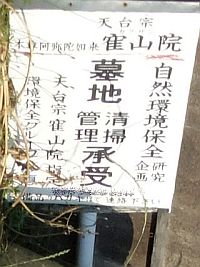 天台宗
本尊阿弥陀如来 隺山院
自然環境保全 研究企画
墓地 清掃管理 承受
天台宗隺山院
環境保全グ
連絡下さい